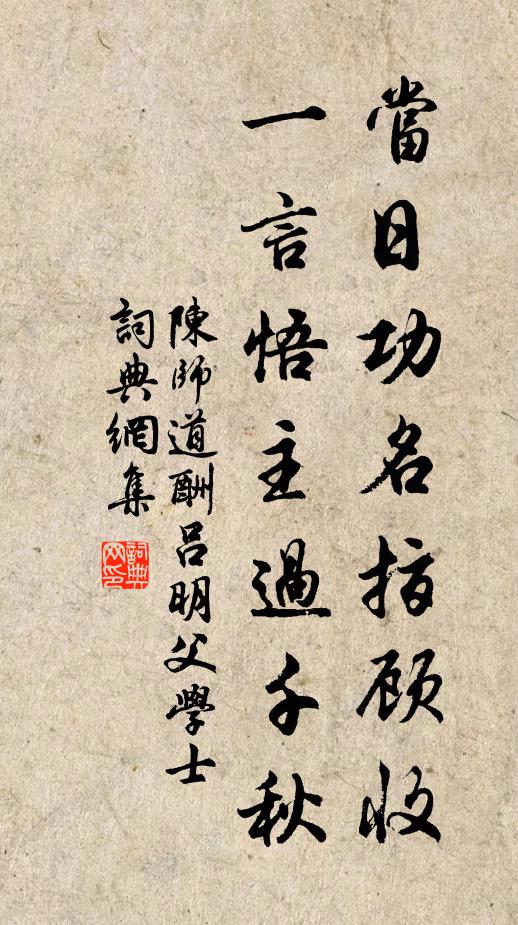 當日功名指顧收
一言悟主過千秋
陳師道酬呂明父學士
詞典網集
詞典
网印